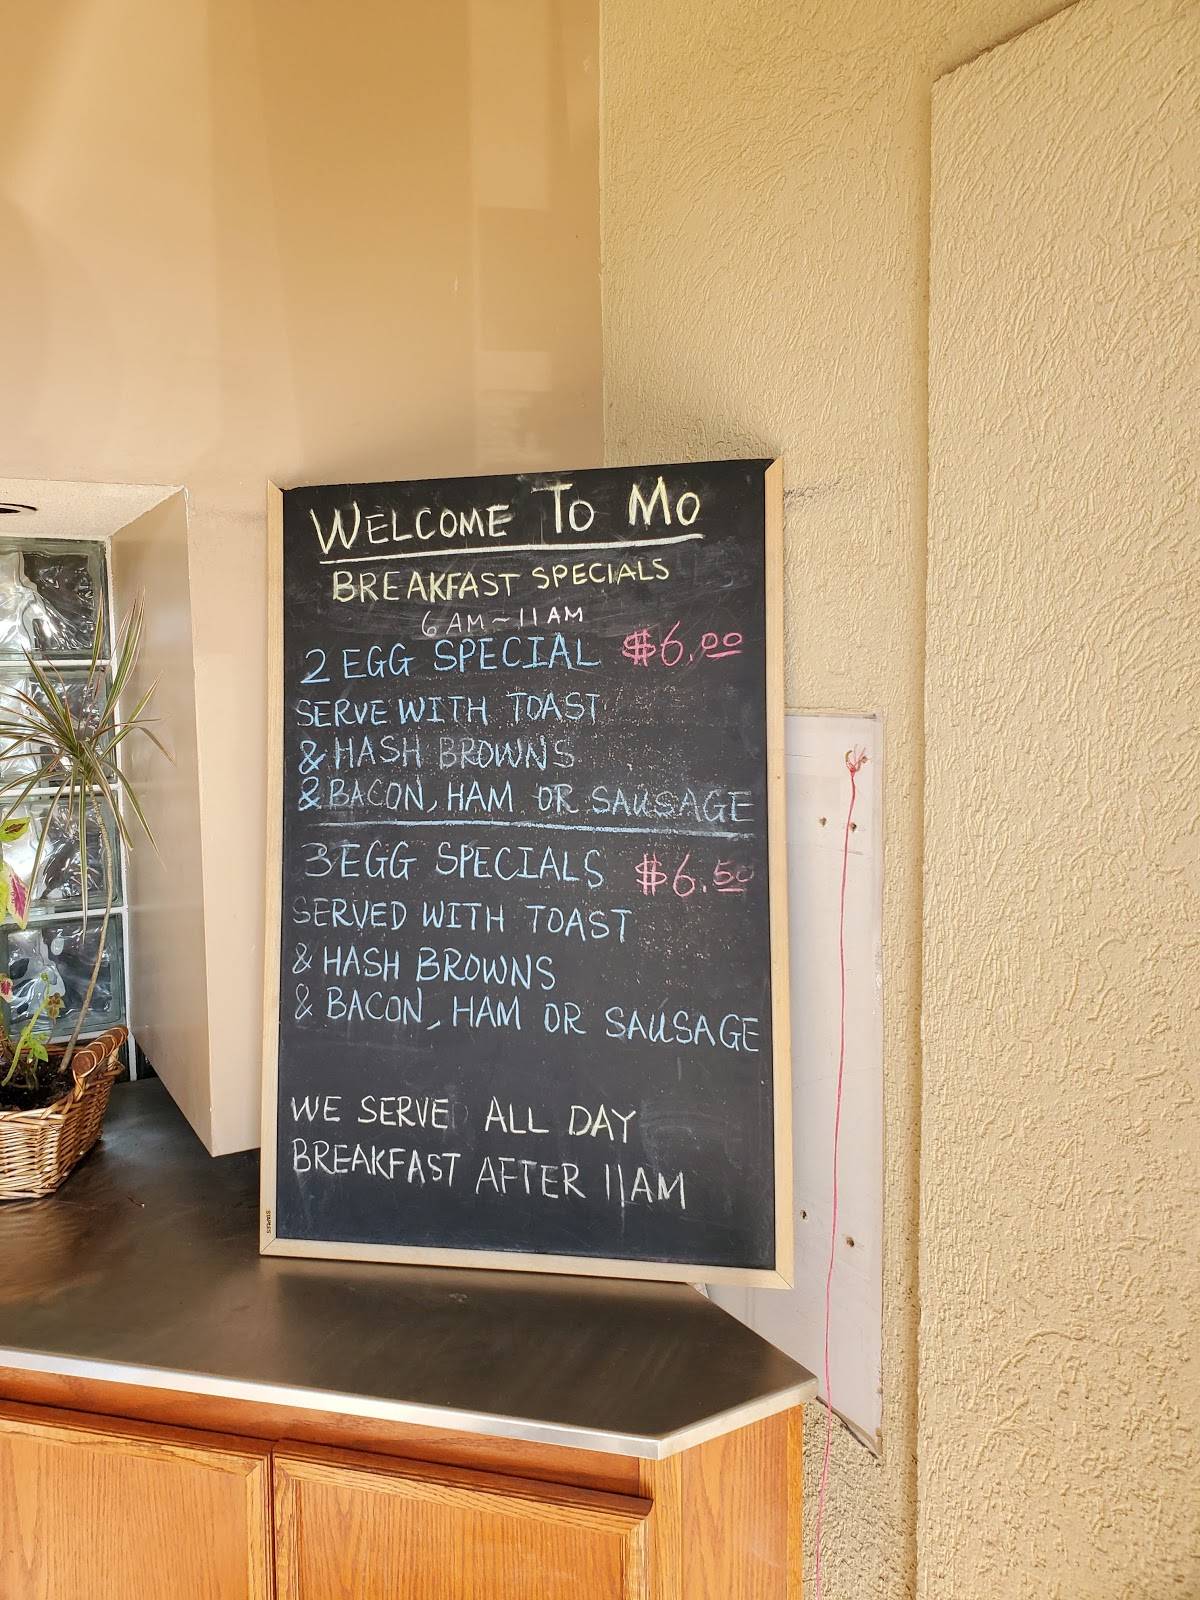 WELCOME TO MO
BREAKFAST SPECIALS
6 AM ~ 11 AM
2 EGG SPECIAL $6.00
SERVE WITH TOAST
& HASH BROWNS
& BACON, HAM OR SAUSAGE
3 EGG SPECIALS $6.50
SERVED WITH TOAST
& HASH BROWNS
& BACON, HAM OR SAUSAGE
WE SERVE ALL DAY
BREAKFAST AFTER 11AM
STAPLES